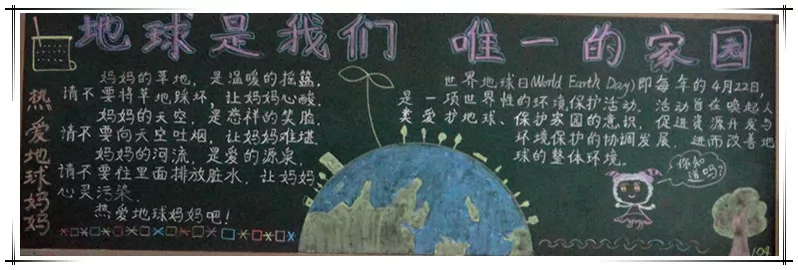 地球是我们 唯一的家园
热爱地球妈妈
妈妈的草地，是温暖的摇篮，
请不要将草地踩坏，让妈妈心酸。
妈妈的天空，是慈祥的笑脸，
请不要向天空吐烟，让妈妈难堪。
妈妈的河流，是爱的源泉，
请不要往里面排放脏水，让妈妈
心灵污染。
热爱地球妈妈吧！
世界地球日(World Earth Day)即每年的4月22日，
是一项世界性的环境保护活动。活动旨在唤起人
类爱护地球、保护家园的意识，促进资源开发与
环境保护的协调发展，进而改善地
球的整体环境。
你知
道吗？
104